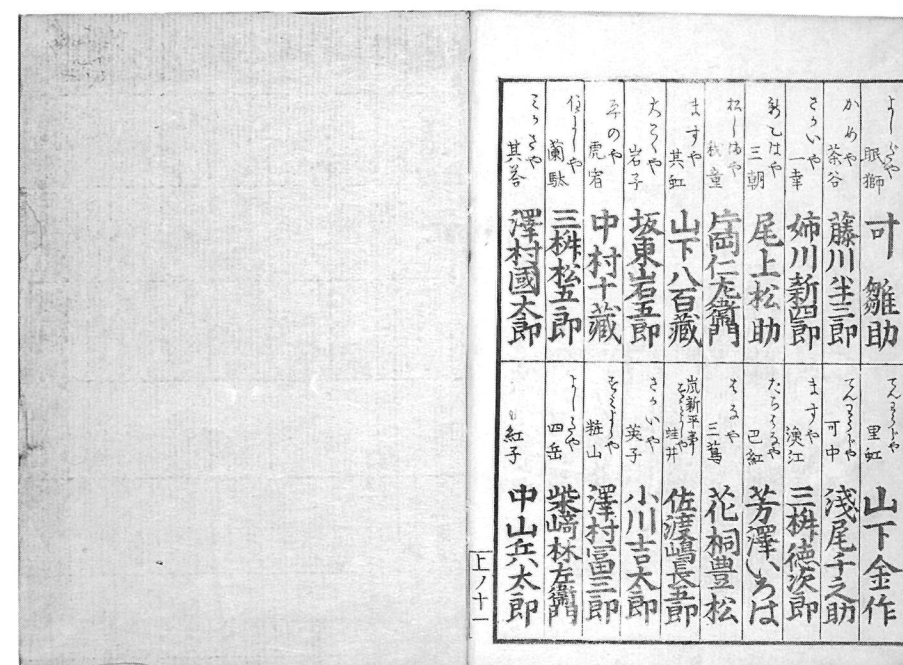 よしのや 眠獅 叶 雛助
かめや 茶谷 藤川半三郎
さかいや 一幸 姉川新四郎
新乙はや 三朝 尾上松助
松しまや 我童 片岡仁左衛門
ますや 其虹 山下八百藏
大こくや 岩子 坂東岩五郎
虎宥 中村十藏
蘭駄 三桝松五郎
其答 澤村國太郎
てんわうじや 里虹 山下金作
てんわうじや 可中 浅尾千之助
ますや 漁江 三桝徳次郎
たちばなや 巴紅 芳澤いろは
はるや 三蔦 花桐豊松
嵐新平事 蛙井 佐渡嶋長五郎
さかいや 英子 小川吉太郎
粧山 澤村冨三郎
よしのや 四岳 柴﨑林左衛門
紅子 中山兵太郎
上ノ十一